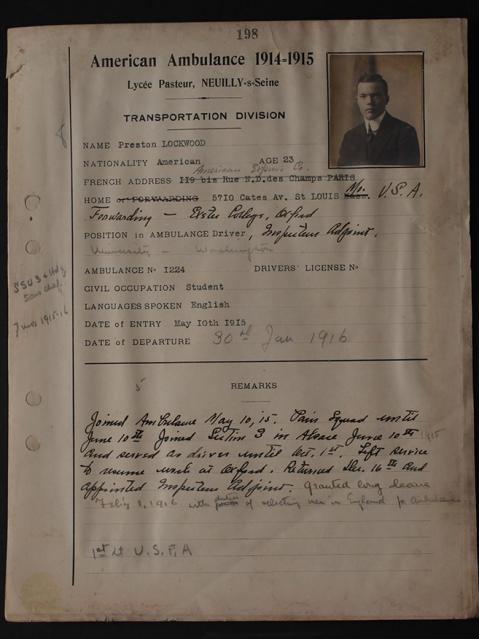 198
American Ambulance 1914-1915
Lycée Pasteur, NEUILLY-s-Seine
TRANSPORTATION DIVISION
8
NAME Preston LOCKWOOD
NATIONALITY American AGE 23
American Express Co.
FRENCH ADDRESS 119 bis Rue N.D.des Champs PARIS
HOME or FORWARDING 5710 Cates Av. St LOUIS Mo. U.S.A.
Forwarding - Exeter College, Oxford
POSITION in AMBULANCE Driver, Inspecteur Adjoint.
University - Washington
AMBULANCE No 1224 DRIVERS' LICENSE No
CIVIL OCCUPATION Student
LANGUAGES SPOKEN English
DATE of ENTRY May 10th 1915
DATE of DEPARTURE 30th Jan 1916
SSU 3
7 mos 1915-16
5
REMARKS
Joined Ambulance May 10, 15. Paris Squad until
June 10th Joined Section 3 in Alsace June 10th 1915
and served as driver until Oct. 1st. Left service
to resume work at Oxford. Returned Dec. 16th and
appointed Inspecteur Adjoint. granted long leave
Feby 8, 1916 with duties of selecting men in England for Ambulance
1st Lt U.S.F.A